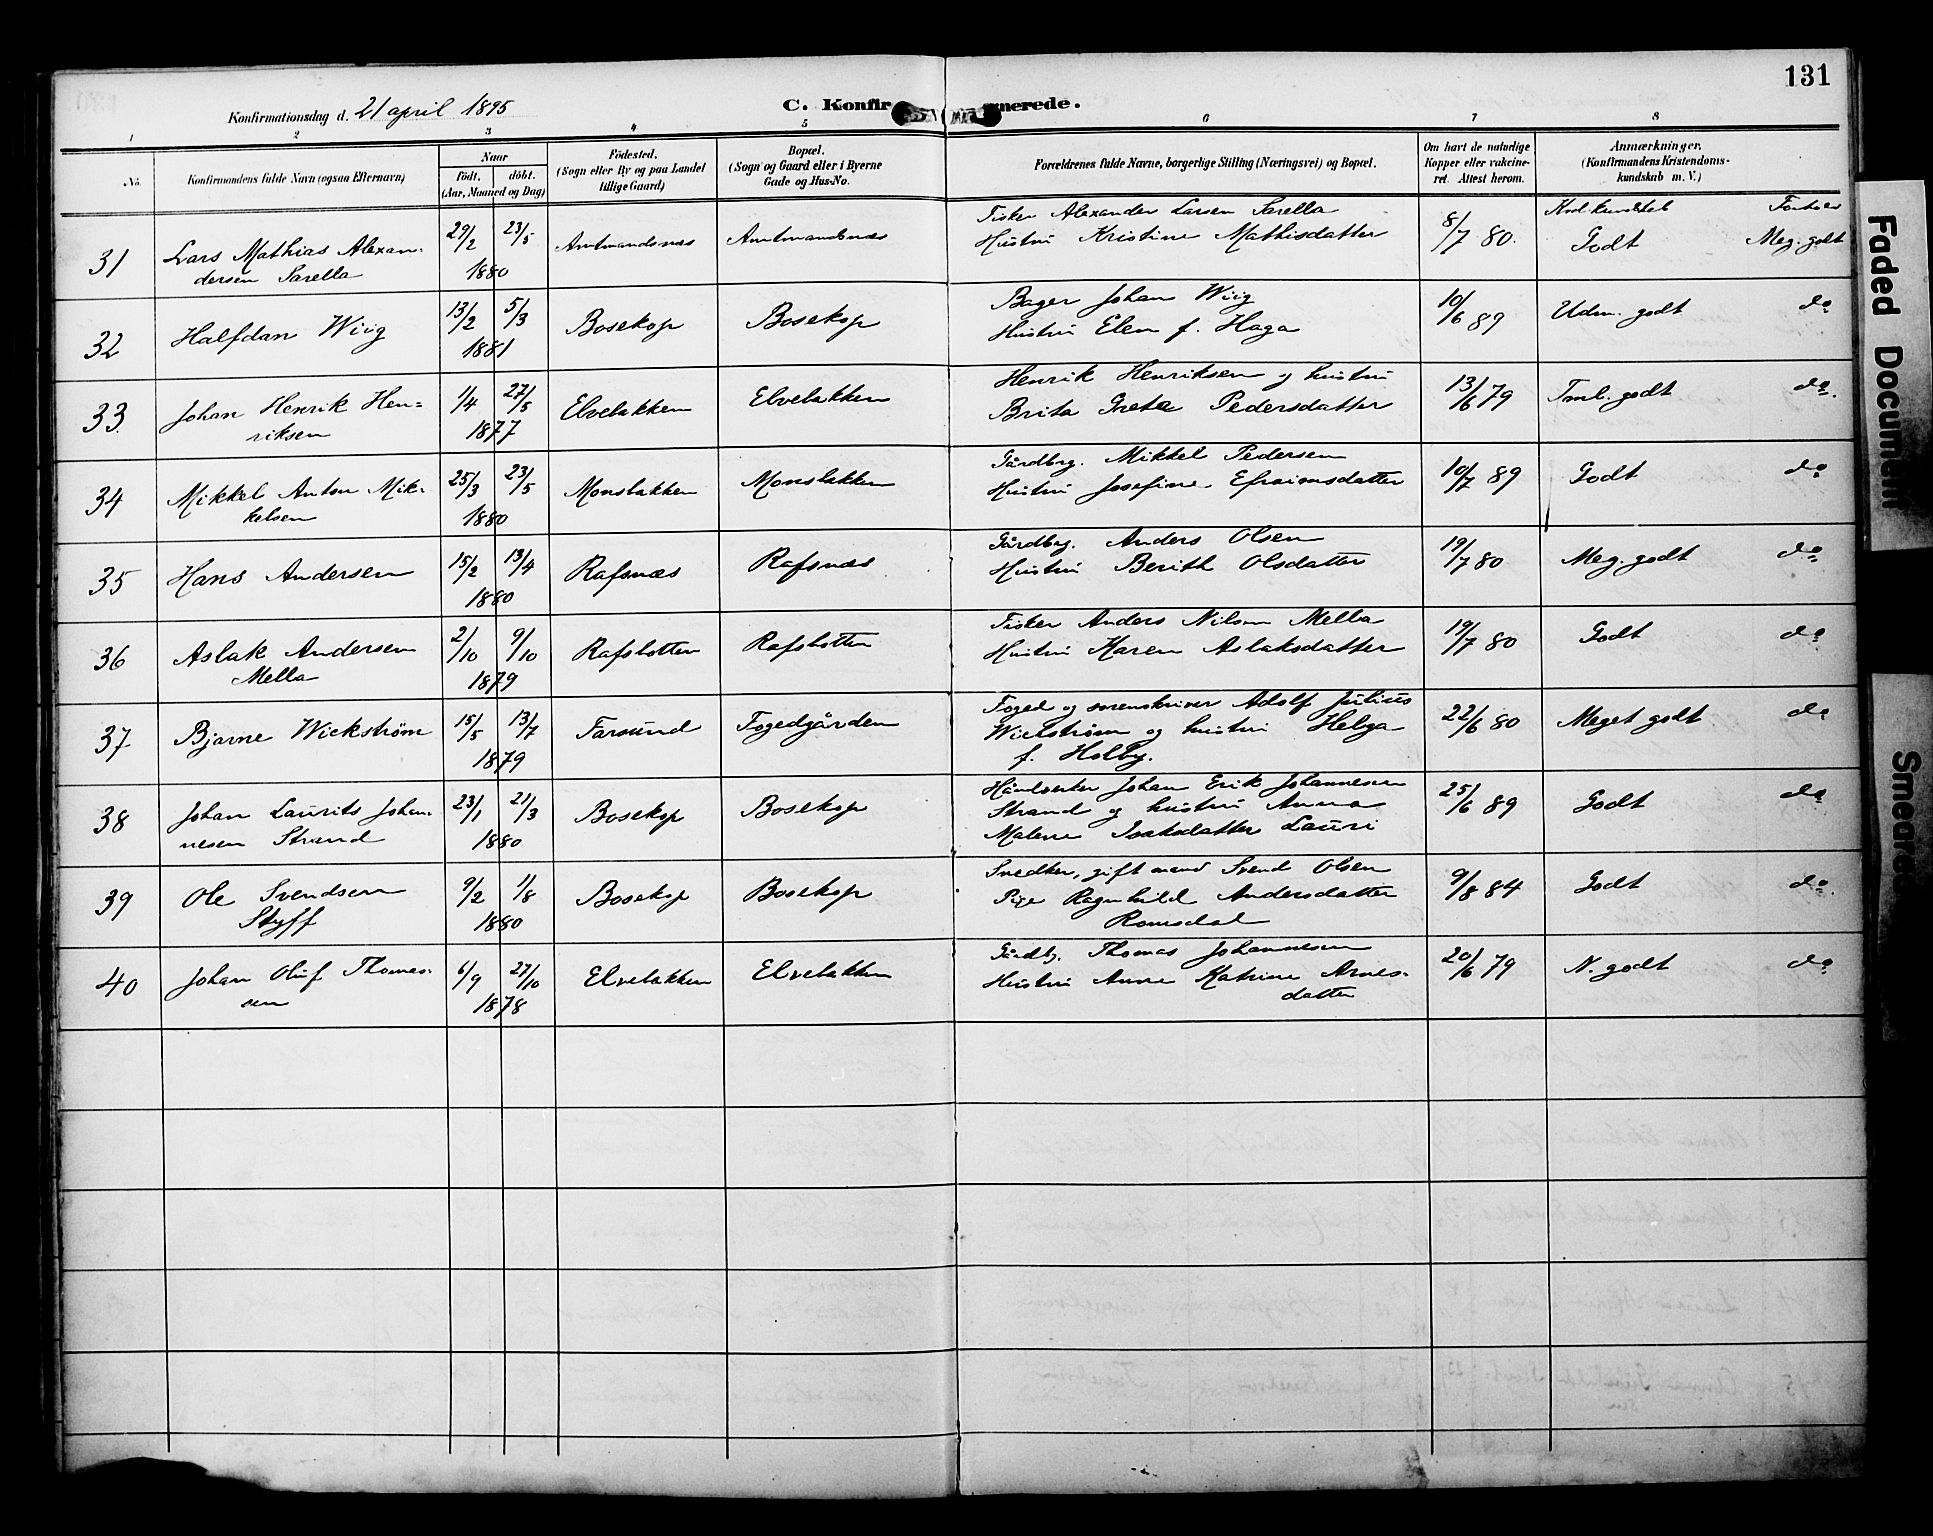 131
Konfirmationsdag d. 21 april 1895
C. Konfir merede.
1 2 3 4 5 6 7 8
No.
Konfirmandens fulde Navn (ogsaa Efternavn)
Naar
født. døbt.
(Aar, Maaned og Dag)
Fødested.
(Sogn eller By og paa Landet
tillige Gaard)
Bopæl.
(Sogn og Gaard eller i Byerne
Gade og Hus-No.
Forældrenes fulde Navne, borgerlige Stilling (Næringsvei) og Bopæl.
Om havt de naturlige
Kopper eller vakcine-
ret. Attest herom.
Anmærkninger.
(Konfirmandens Kristendoms-
kundskab m. V.)
31 Lars Mathias Alexan- 29/2 23/5 Amtmandsnæs Amtmandsnæs Fisker Alexander Larsen Sarella 8/7 80. Kndskundskab Forhold
dersen Sarella 1880 Hustru Kristine Mathisdatter Godt Meg. godt
32 Halfdan Wiig 13/2 5/3 Bosekop Bosekop Bager Johan Wiig 10/6 89 Udm. godt do
1881 Hustru Elen f. Haga
33. Johan Henrik Hen= 1/4 27/5 Elvebakken Elvebakken Henrik Henriksen og hustru 13/6 79 Tml. godt do.
riksen 1877 Brita Greta Pedersdatter
34 Mikkel Anton Mik- 25/3 23/5 Monsbakken Monsbakken Gårdbrg. Mikkel Pedersen 10/7 89 Godt do
kelsen 1880 Hustru Josefine Efraimsdatter
35 Hans Andersen 15/2 13/4 Rafsnæs Rafsnæs Gårdbrg. Anders Olsen 19/7 80 Meg. godt do
1880 Hustru Berith Olsdatter
36 Aslak Andersen 2/10 9/10 Rafsbotten Rafsbotten Fisker Anders Nilsen Mella 19/7 80 Godt do
Mella 1879 Hustru Karen Aslaksdatter
37 Bjarne Wickstrøm 15/5 13/7 Farsund Fogedgården Foged og sorenskriver Adolf Julius 22/6 80 Meget godt do
1879 Wickstrøm og hustru Helga
f. Holby.
38 Johan Laurits Johan- 23/1 21/3 Bosekop Bosekop Håndverker Johan Erik Johannesen 25/6 89 Godt do
nesen Strand 1880 Strand og hustru Anna
Malene Isaksdatter Lauri
39 Ole Svendsen 9/2 1/8 Bosekop Bosekop Snedker, gift mand Svend Olsen 9/8 84 Godt do.
Styff 1880 Pige Ragnhild Andersdatter
Romsdal
40 Johan Oluf Thomas- 6/9 27/10 Elvebakken Elvebakken Gårdbr. Thomas Johannesen 20/6 79 N. godt do
sen 1878 Hustru Anne Katrine Arnes-
datter
Faded Document
Smeared